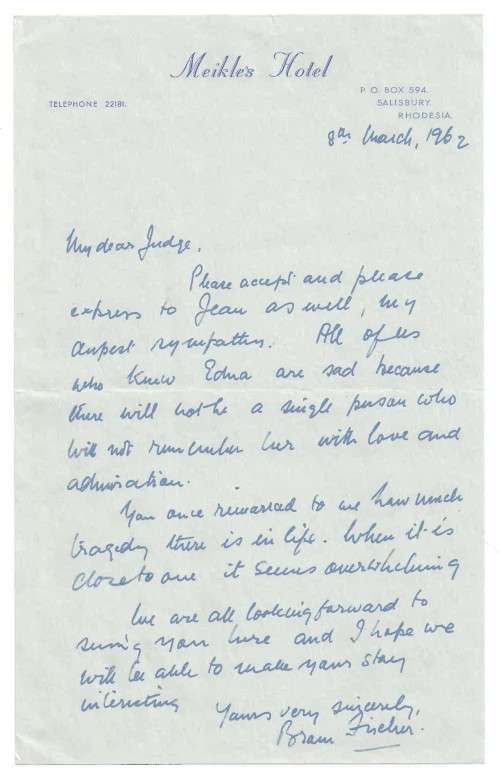 Meikle's Hotel
TELEPHONE 22181.
P. O. BOX 594.
SALISBURY.
RHODESIA.
8th March, 1962
My dear Judge,
Please accept and please
express to Jean as well, my
deepest sympathy. All of us
who knew Edna are sad because
there will not be a single person who
will not remember her with love and
admiration.
You once remarked to me how much
tragedy there is in life. When it is
close to one it seems overwhelming
We are all looking forward to
seeing you here and I hope we
will be able to make your stay
interesting
Yours very sincerely,
Bram Fischer.